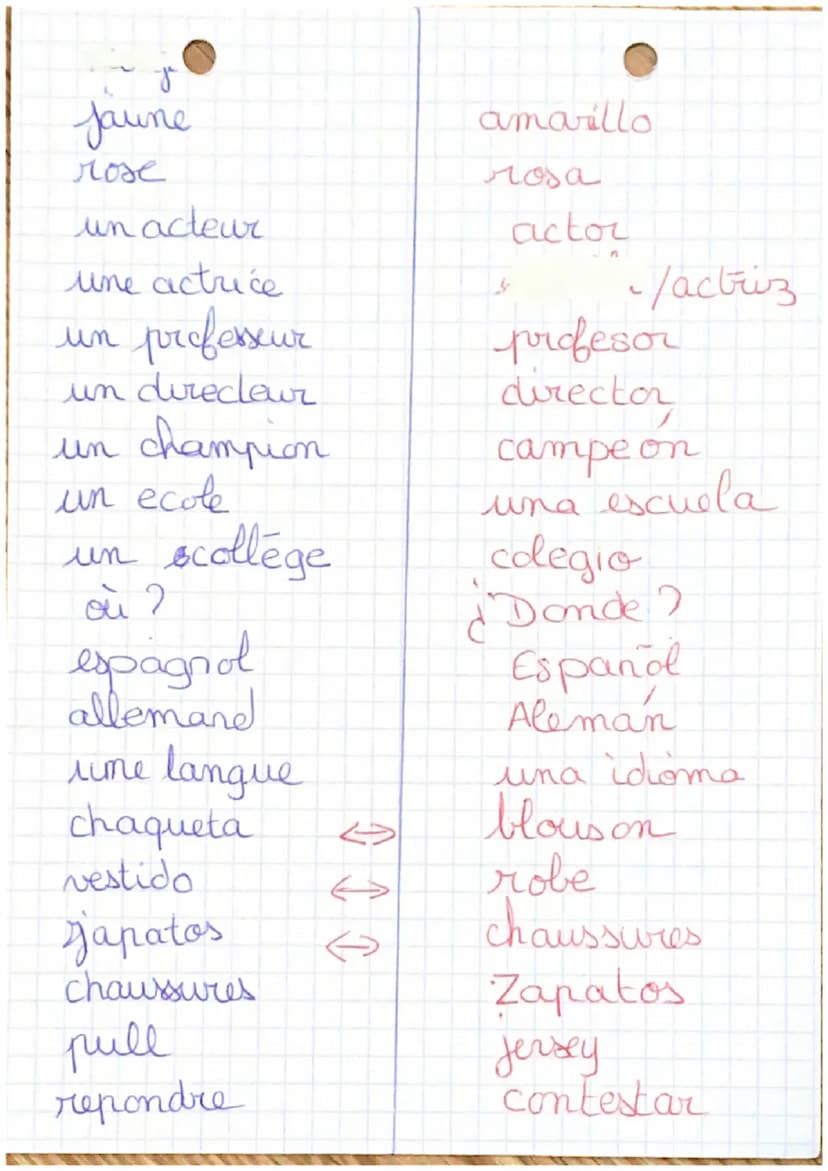 jaune amarillo
rose rosa
un acteur actor
une actrice /actriz
un professeur profesor
un directeur director
un champion campeón
un ecole una escuela
un collége colegio
où ? ¿Donde?
espagnol Español
allemand Alemán
une langue una idioma
chaqueta ⇔ blouson
vestido ⇔ robe
zapatos ⇔ chaussures
chaussures Zapatos
pull jersey
repondre contestar